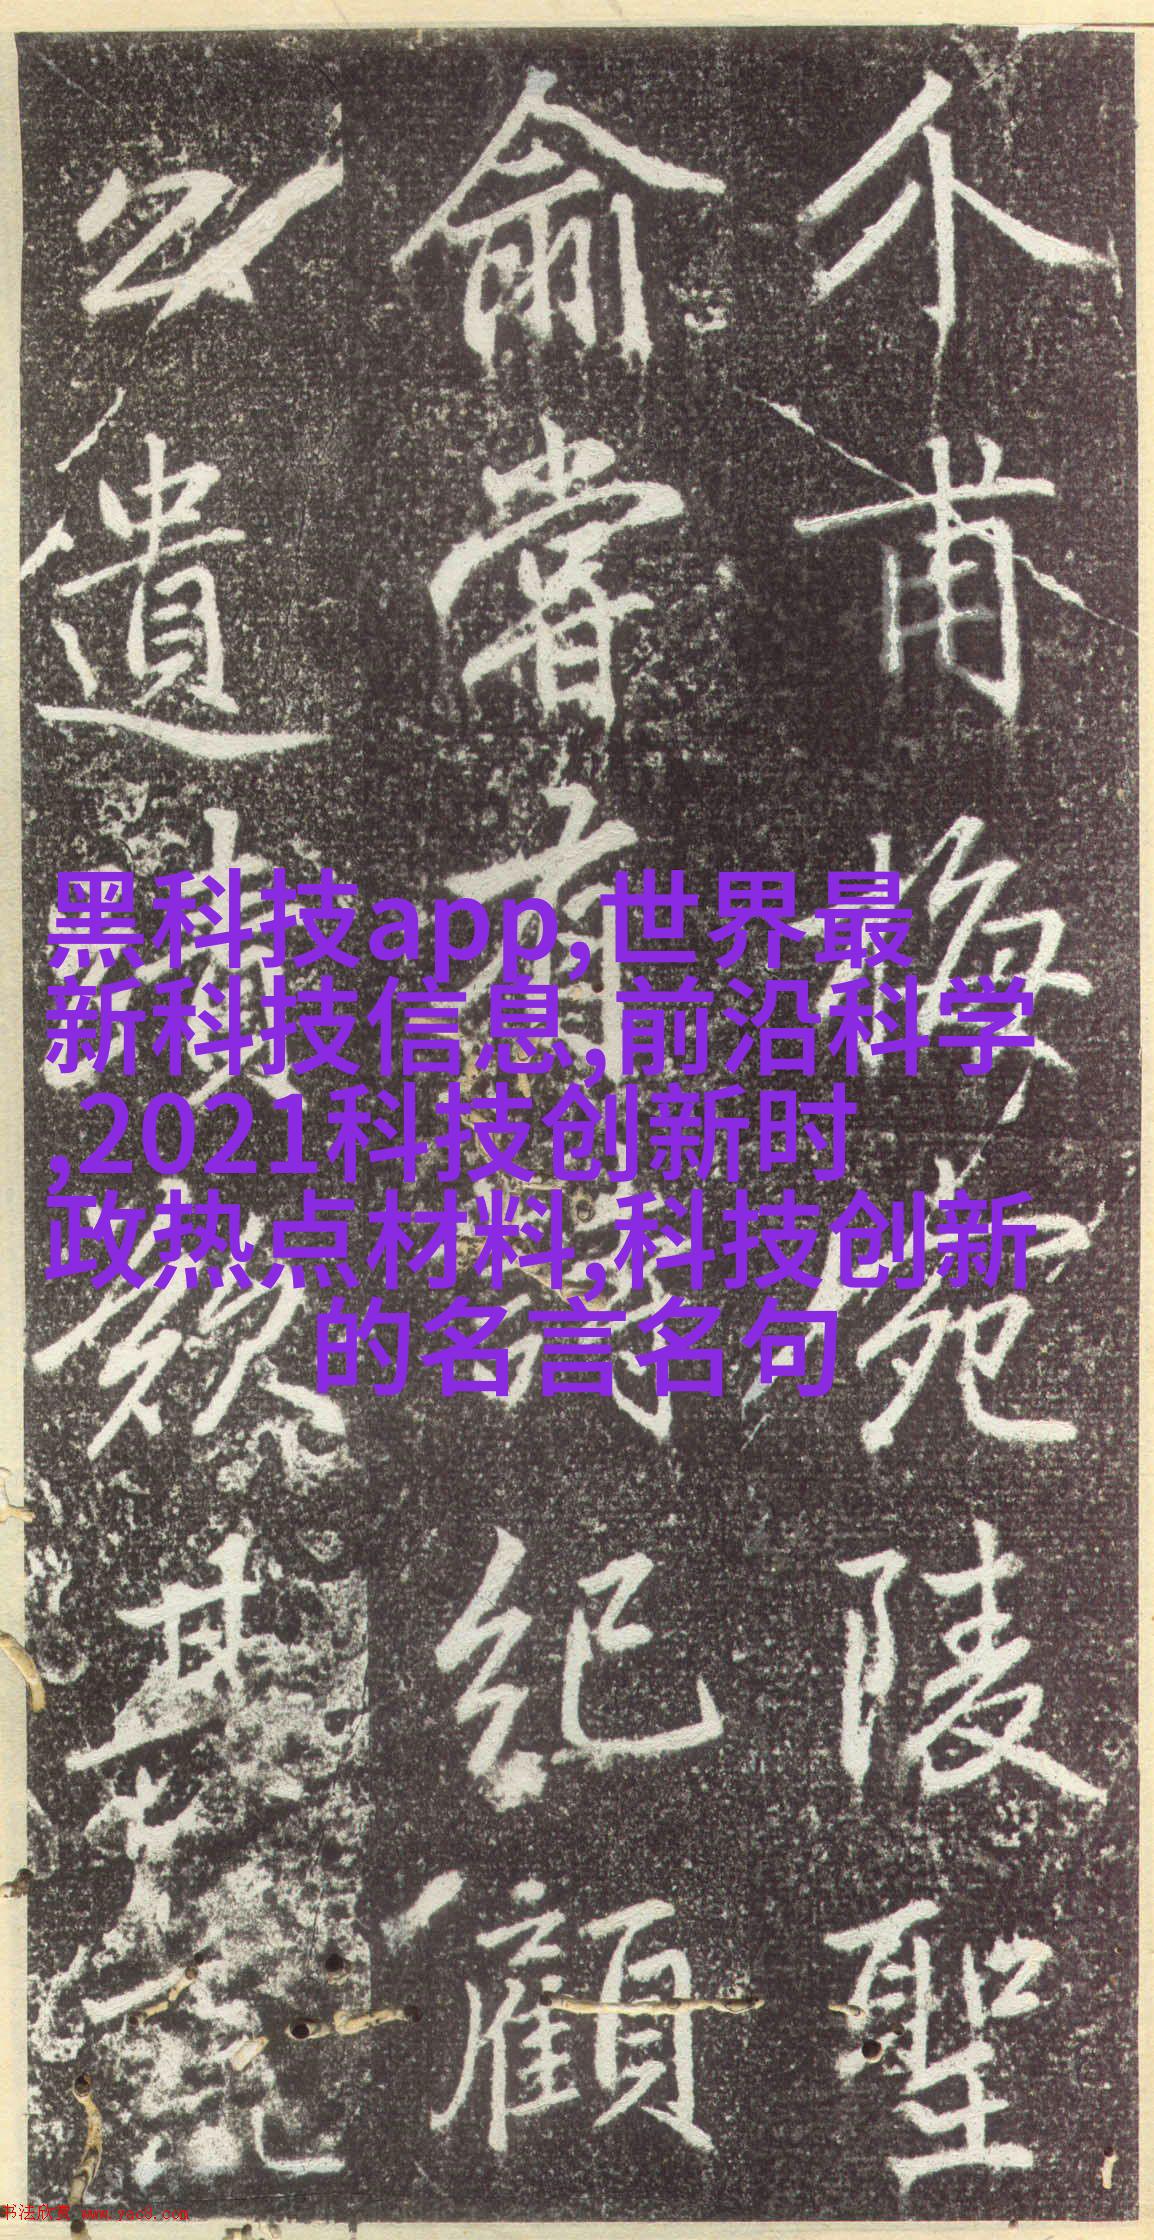 介甫梅苑陵聖
俞嘗有詩紀顧
公遺其
黑科技app,世界最
新科技信息,前沿科学
,2021科技创新时
政热点材料,科技创新
的名言名句
书法欣赏 www.yac8.com